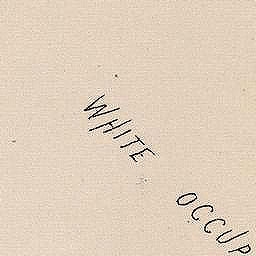 WHITE OCCUP